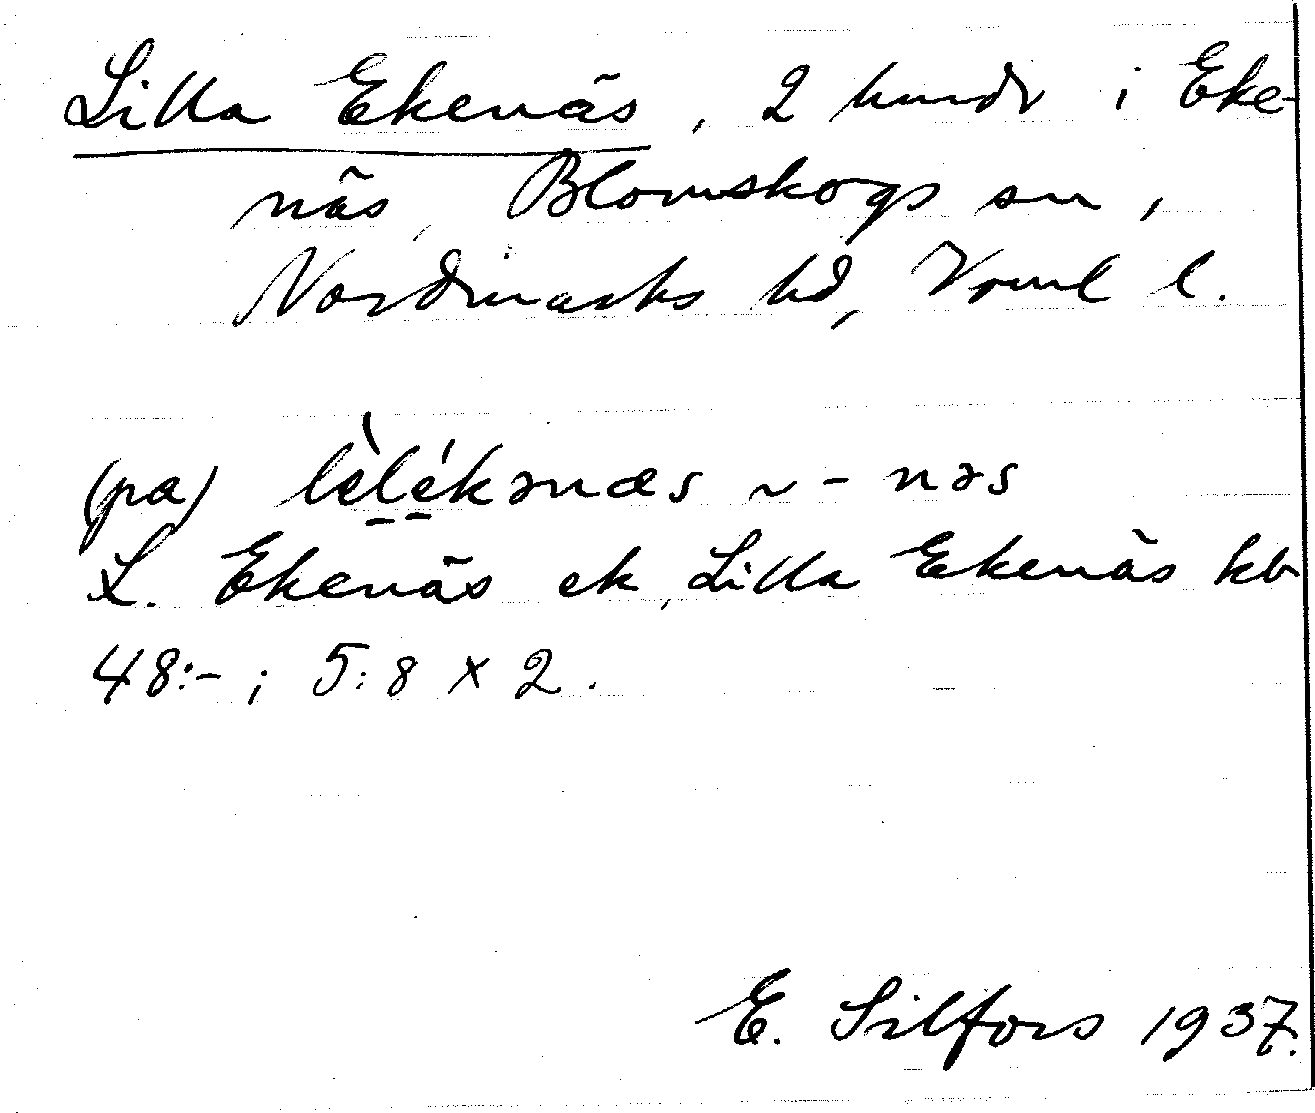 Lilla Ekenäs, 2 hmdr i Eke-
näs, Blomskogs sn,
Nordmarks hd, Vrml l.
(pa) lèlékənæs ~ -nəs
L. Ekenäs ek, Lilla Ekenäs kb
48:- ; 5:8 x 2.
E. Silfors 1937.